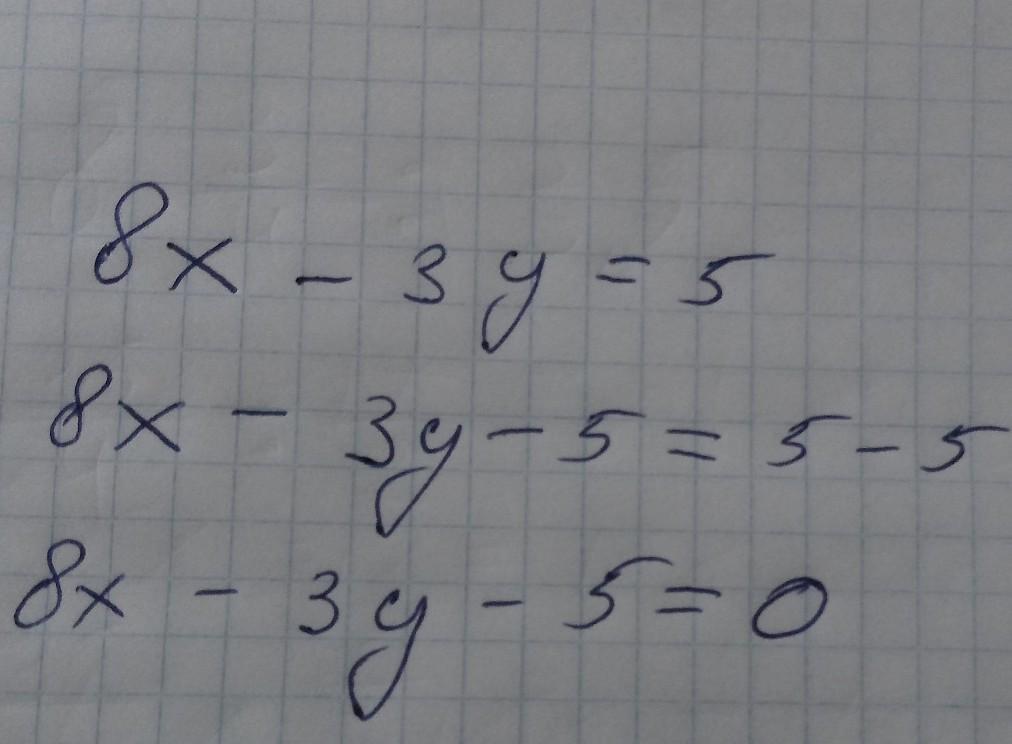 8x - 3y = 5
8x - 3y - 5 = 5 - 5
8x - 3y - 5 = 0